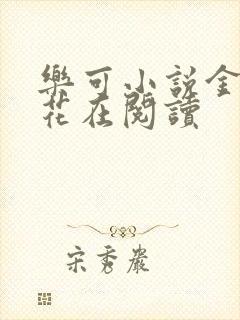 樂可小說金
花在閱讀
宋秀嚴